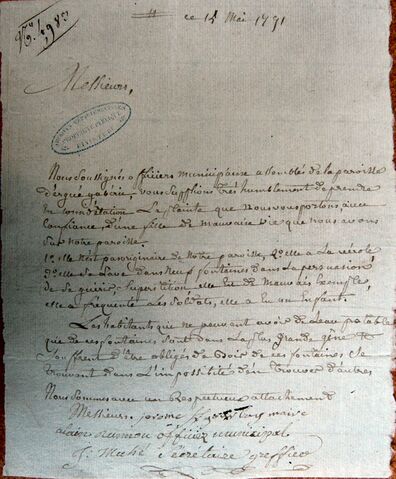 ce 15 Mai 1791
Messieurs,
Nous soussignés officiers municipaux assemblés de la paroisse
d'ergué gaberic, vous supplions très humblement de prendre
en considération La plainte que nous vous portons, avec
confiance, d'une fille de mauvaise vie que nous avons
sur notre paroisse.
1º elle n'est pas originaire de notre paroisse, 2º elle a La
3º elle se Lave dans neuf fontaines dans La persuasion
de se guérir, superstition, elle est de mauvais exemple,
elle a fréquenté Les soldats, elle a Eu un Enfant.
Les habitants que ne peuvent avoir de Leau potable
que de ces fontaines sont dans La plus grande gêne et
souffrent d'être obligés de boire de ces fontaines se
trouvant dans L'impossibilité d'en trouver d'autres
Nous sommes avec un Respectueux attachement
Messieurs, jerome maire
alain officier municipal
secrétaire greffier